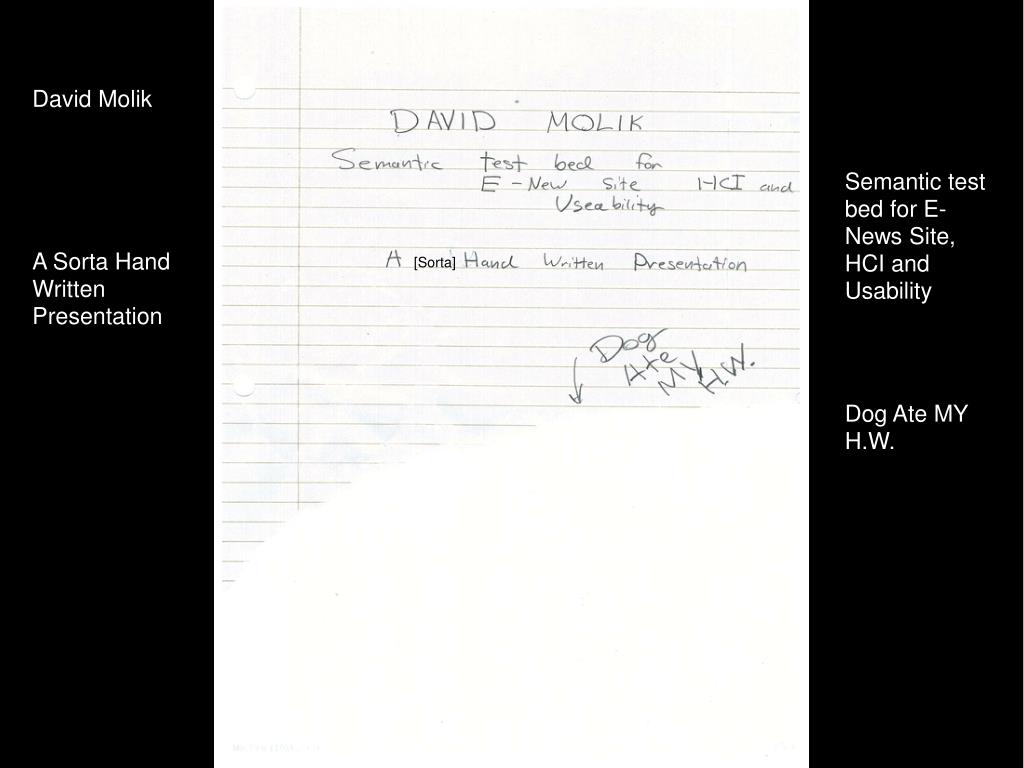 David Molik
A Sorta Hand
Written
Presentation
DAVID MOLIK
Semantic test bed for
E-New Site HCI and
Useability
A [Sorta] Hand Written Presentation
Dog
Ate
MY
H.W.
Semantic test
bed for E-
News Site,
HCI and
Usability
Dog Ate MY
H.W.